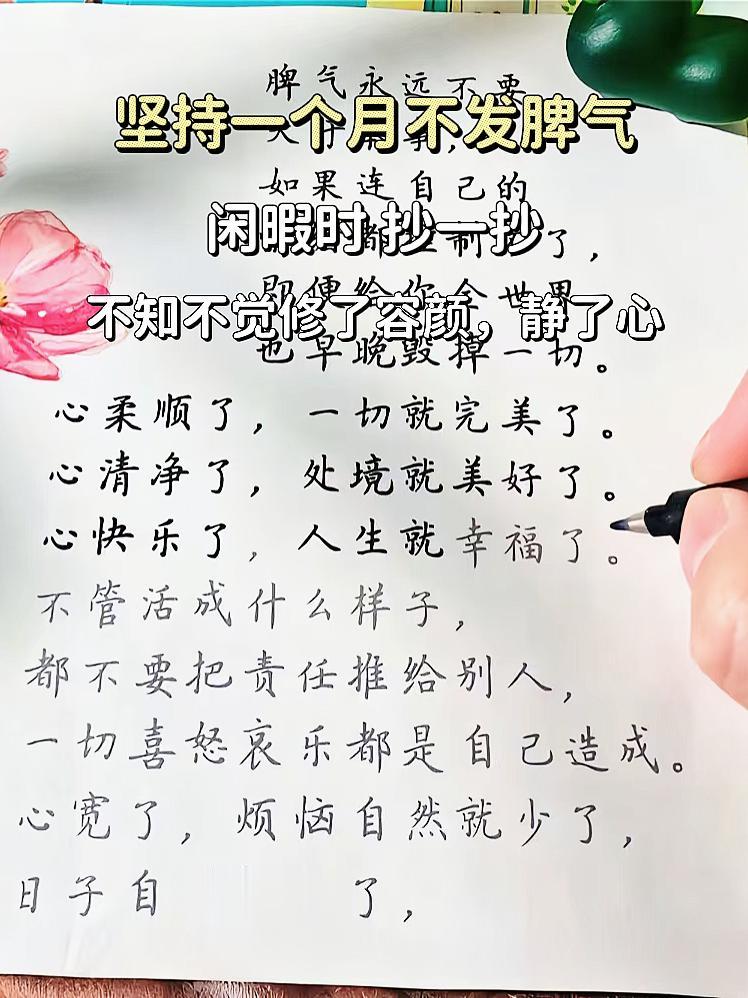 脾气永远不要
坚持一个月不发脾气
如果连自己的
闲暇时 抄一抄
都 制 了，
即便给你全世界
不知不觉修了容颜，静了心
也早晚毁掉一切。
心柔顺了，一切就完美了。
心清净了，处境就美好了。
心快乐了，人生就幸福了。
不管活成什么样子，
都不要把责任推给别人，
一切喜怒哀乐都是自己造成。
心宽了，烦恼自然就少了，
日子自 了，